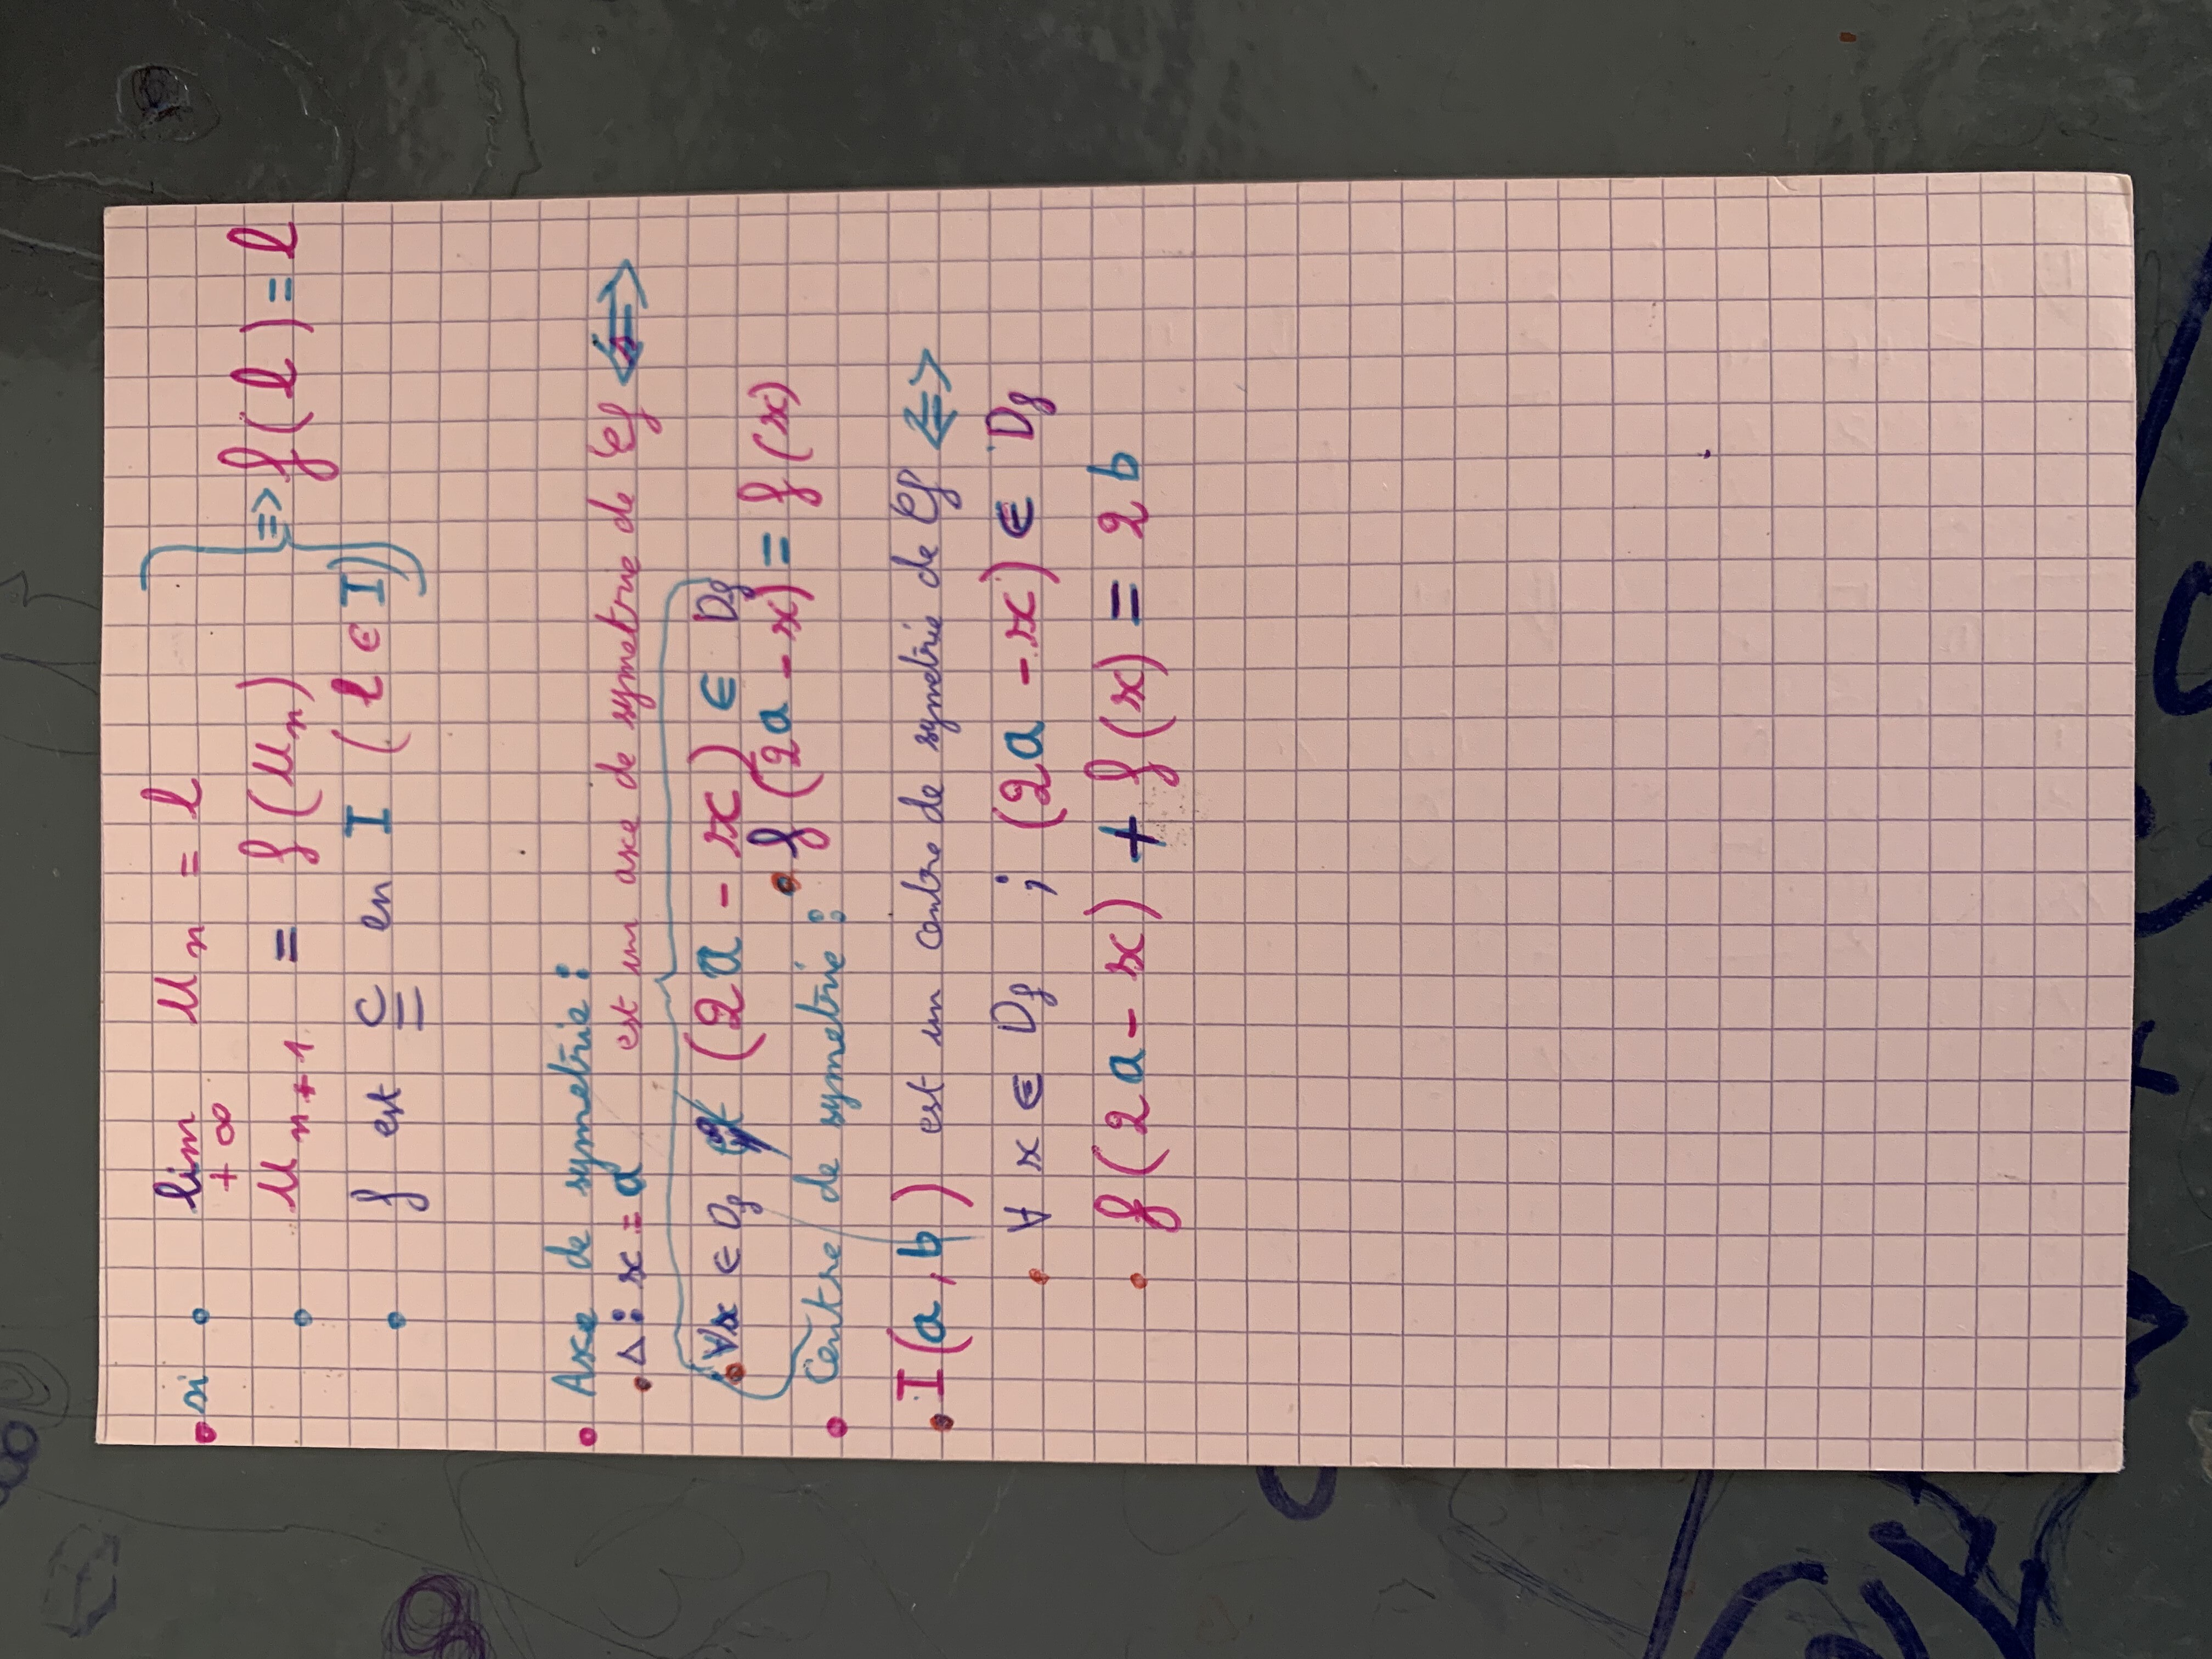 • si • lim Un = l
+ ∞
• Un+1 = f(Un) => f(l) = l
• f est C en I (l ∈ I)
• Axe de symetrie :
• Δ : x = a est un axe de symetrie de Cf <=>
• ∀x ∈ Df (2a - x) ∈ Df
• f(2a - x) = f(x)
• Centre de symetrie :
• I(a, b) est un centre de symetrie de Cf <=>
• ∀ x ∈ Df ; (2a - x) ∈ Df
• f(2a - x) + f(x) = 2b